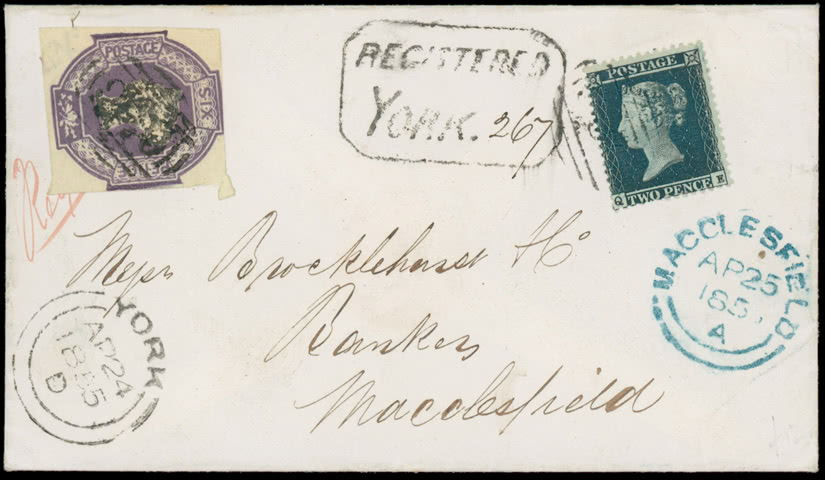 POSTAGE
SIX
REGISTERED
YORK. 267
POSTAGE
Q TWO PENCE E
Reg
Messrs Brocklehurst & Co
Bankers
Macclesfield
YORK
AP 24
1855
D
MACCLESFIELD
AP 25
185
A